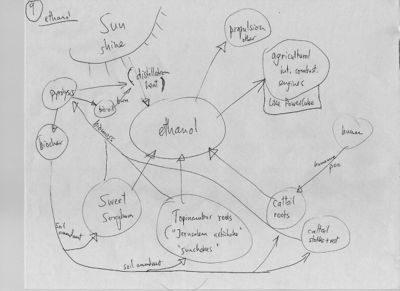 9
ethanol
Sun
shine
propulsion
other
agricultural
int. combust.
engines
Like PowerCube
(distillation
heat)
pyrolysis
burn
biochar
biomass
ethanol
human
humanure
poo
Sweet
Sorghum
Topinambur roots
("Jerusalem artichoke"
"sunchokes"
cattail
roots
cattail
stalks + rest
soil amendment
soil amendment